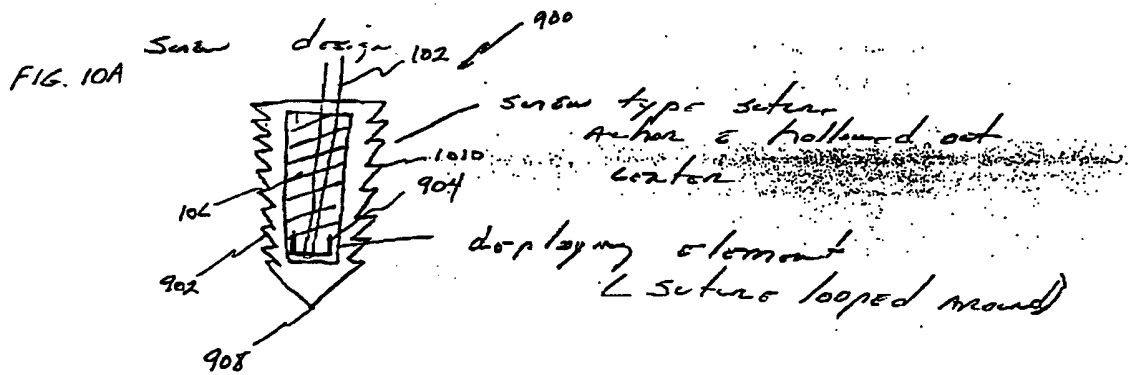 Screw design
900
FIG. 10A
102
screw type suture
Anchor c hollowed out
center
1010
904
106
deploying element
( suture looped around)
902
908